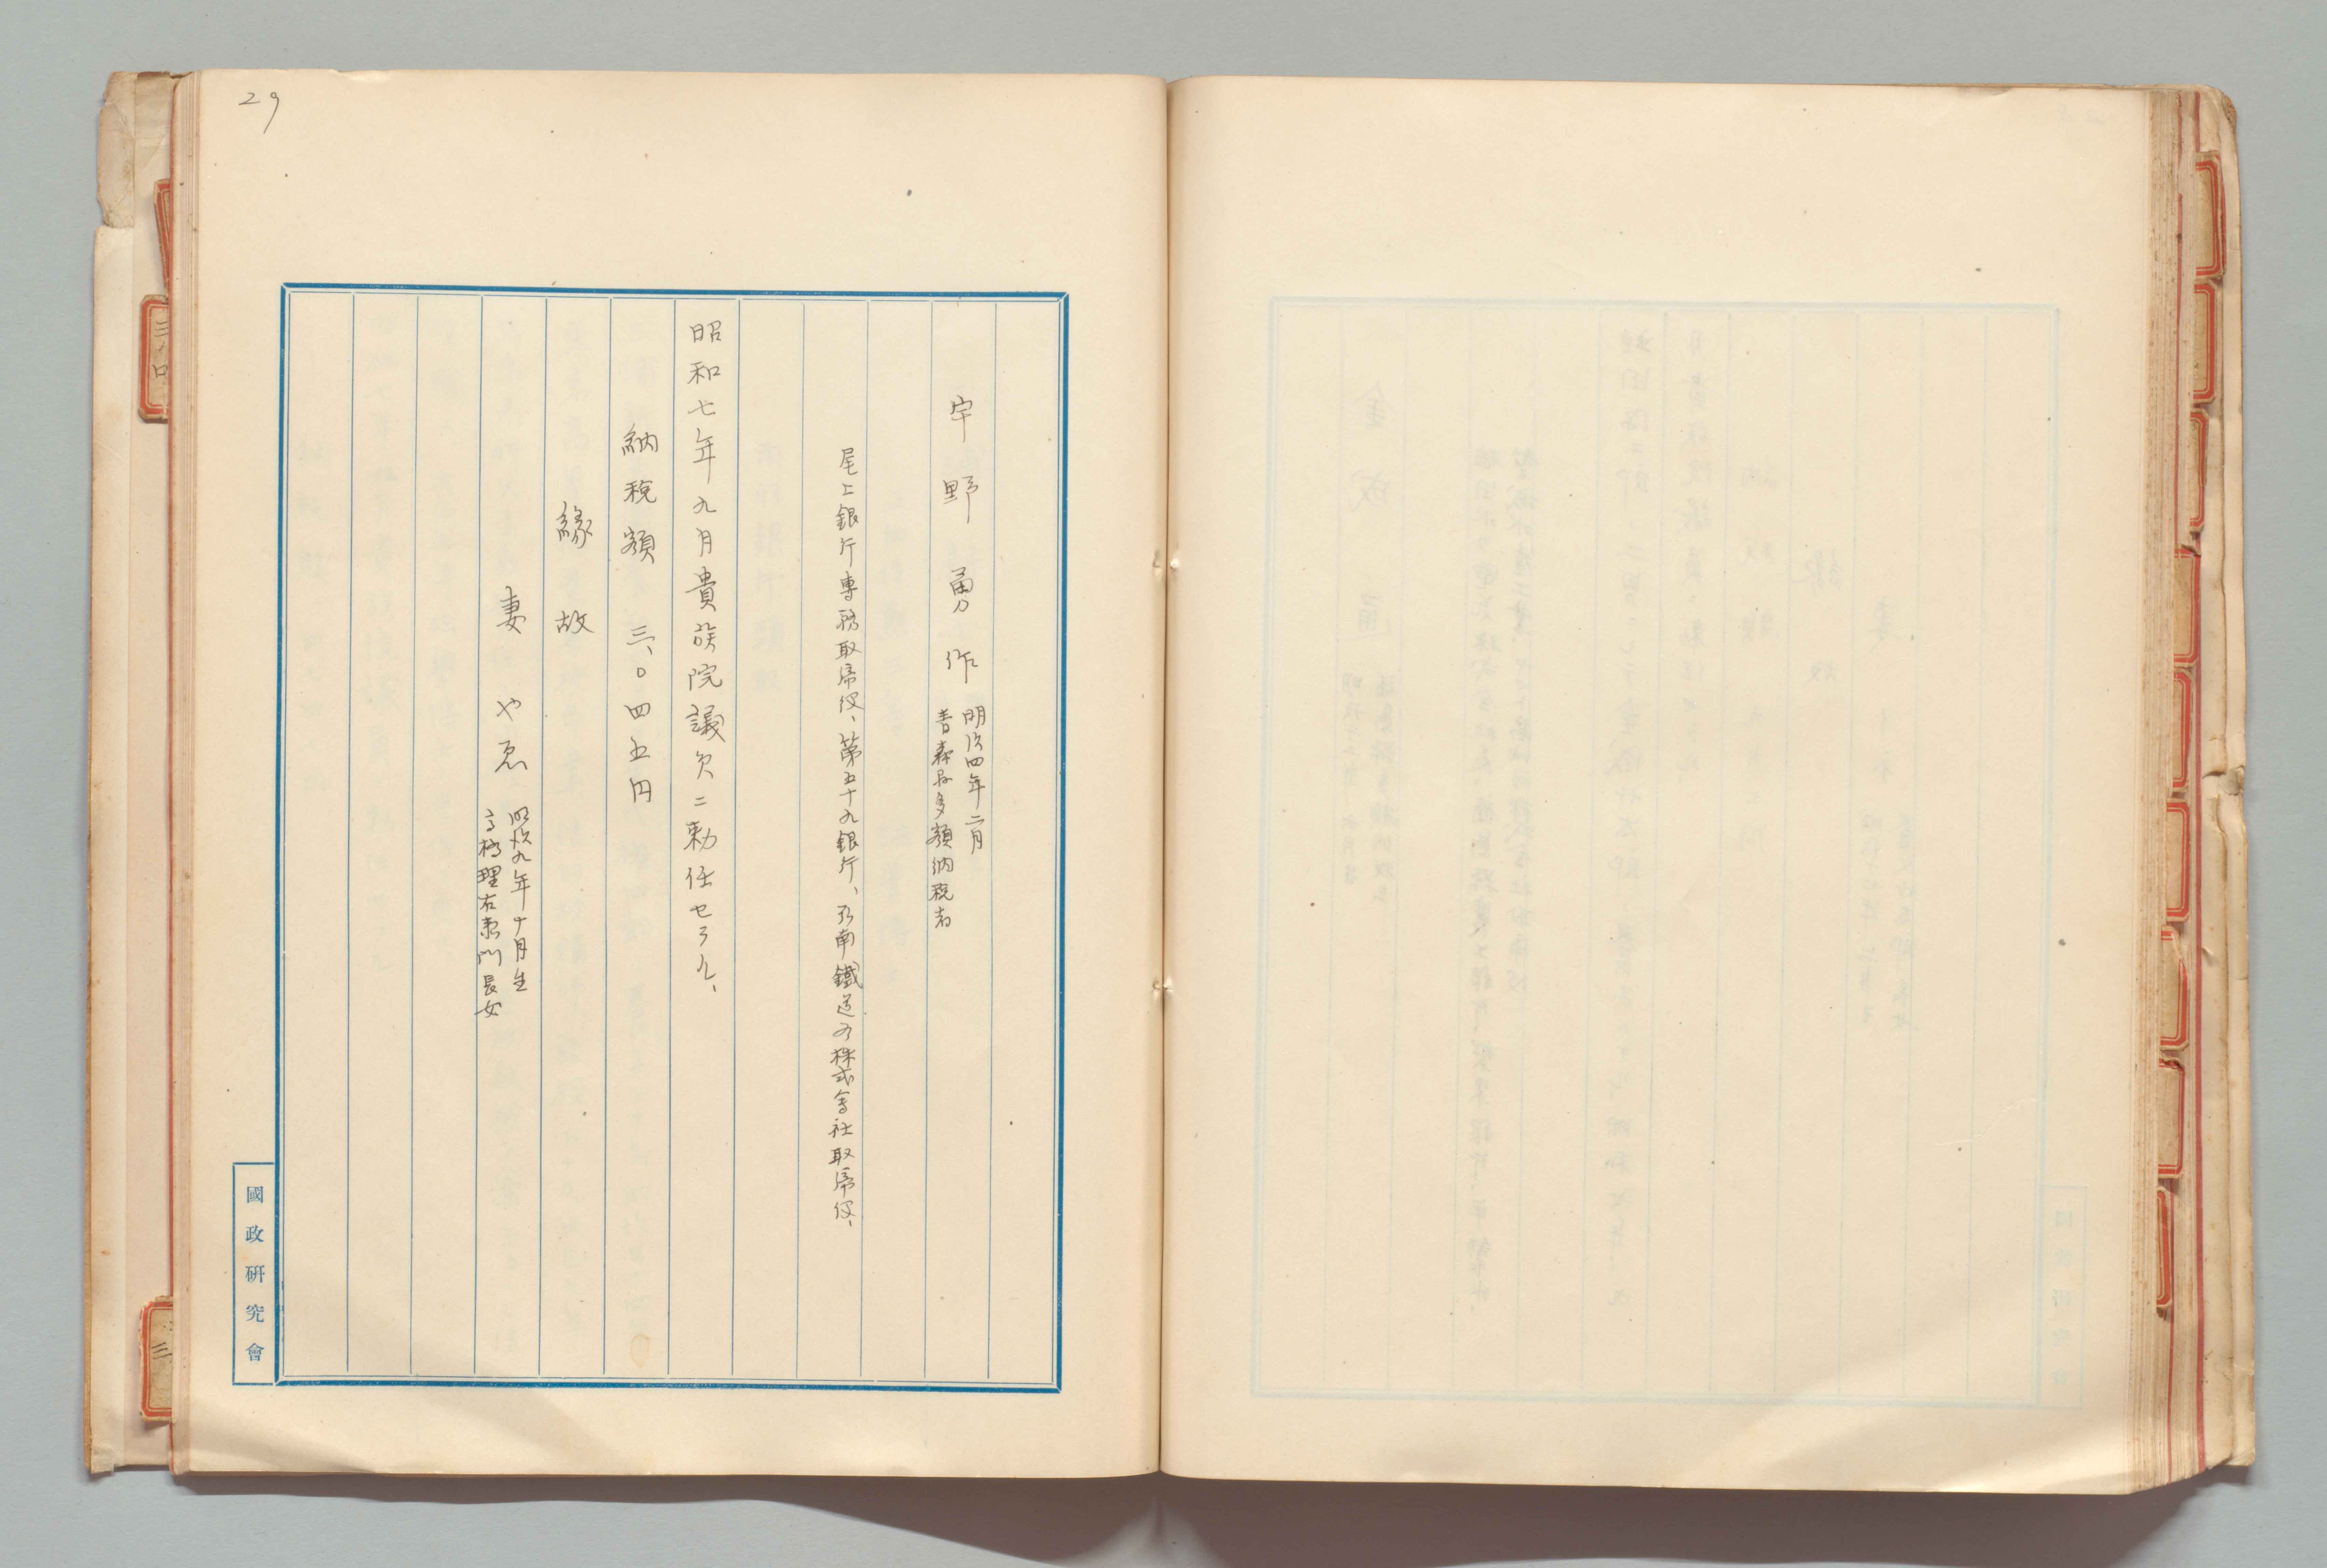 29
宇野勇作
明治四年二月
青森県多額納税者
尾上銀行専務取締役、第五十九銀行、弘南鐵道各株式會社取締役、
昭和七年九月貴族院議欠ニ勅任セラル、
納税額 三、〇四五円
緣故
妻 やゑ
明治九年十月生
高橋理右衛門長女
國政研究會
三、口
三